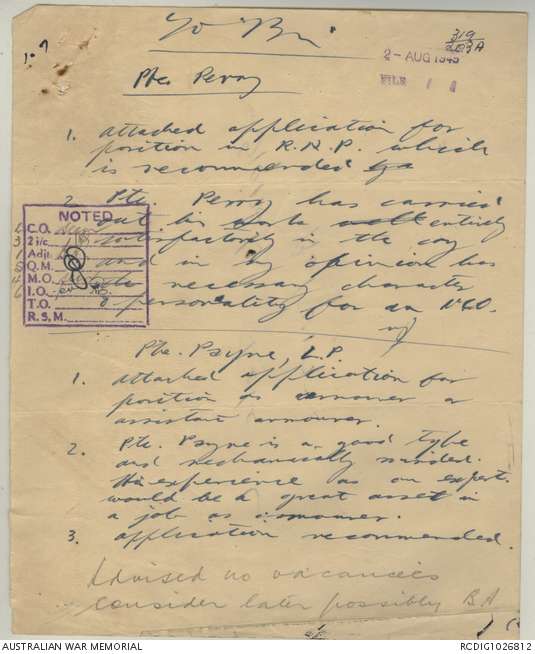 To "Bn"
319
203A
2 - AUG 1945
FILE
Pte Perry
1. attached application for
position in R.N.P. which
is recommended
2. Pte. Perry has carried
out his work entirely
satisfactorily in the coy
and in my opinion has
the necessary character
& personality for an NCO.
NOTED
C.O.
2 i/c
Adjt
Q.M.
M.O.
I.O.
T.O.
R.S.M.
Pte. Payne, L.P.
1. attached application for
position as armourer or
assistant armourer.
2. Pte. Payne is a good type
and mechanically minded.
His experience as an expert.
would be a great asset in
a job as armourer.
3. application recommended.
Advised no vacancies
consider later possibly B.A
AUSTRALIAN WAR MEMORIAL
RCDIG1026812